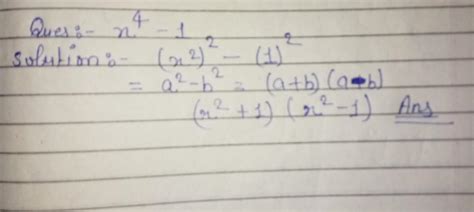 Ques:- x⁴ - 1
Solution:- (x²)² - (1)²
= a² - b² = (a+b) (a-b)
(x² + 1) (x² - 1) Ans